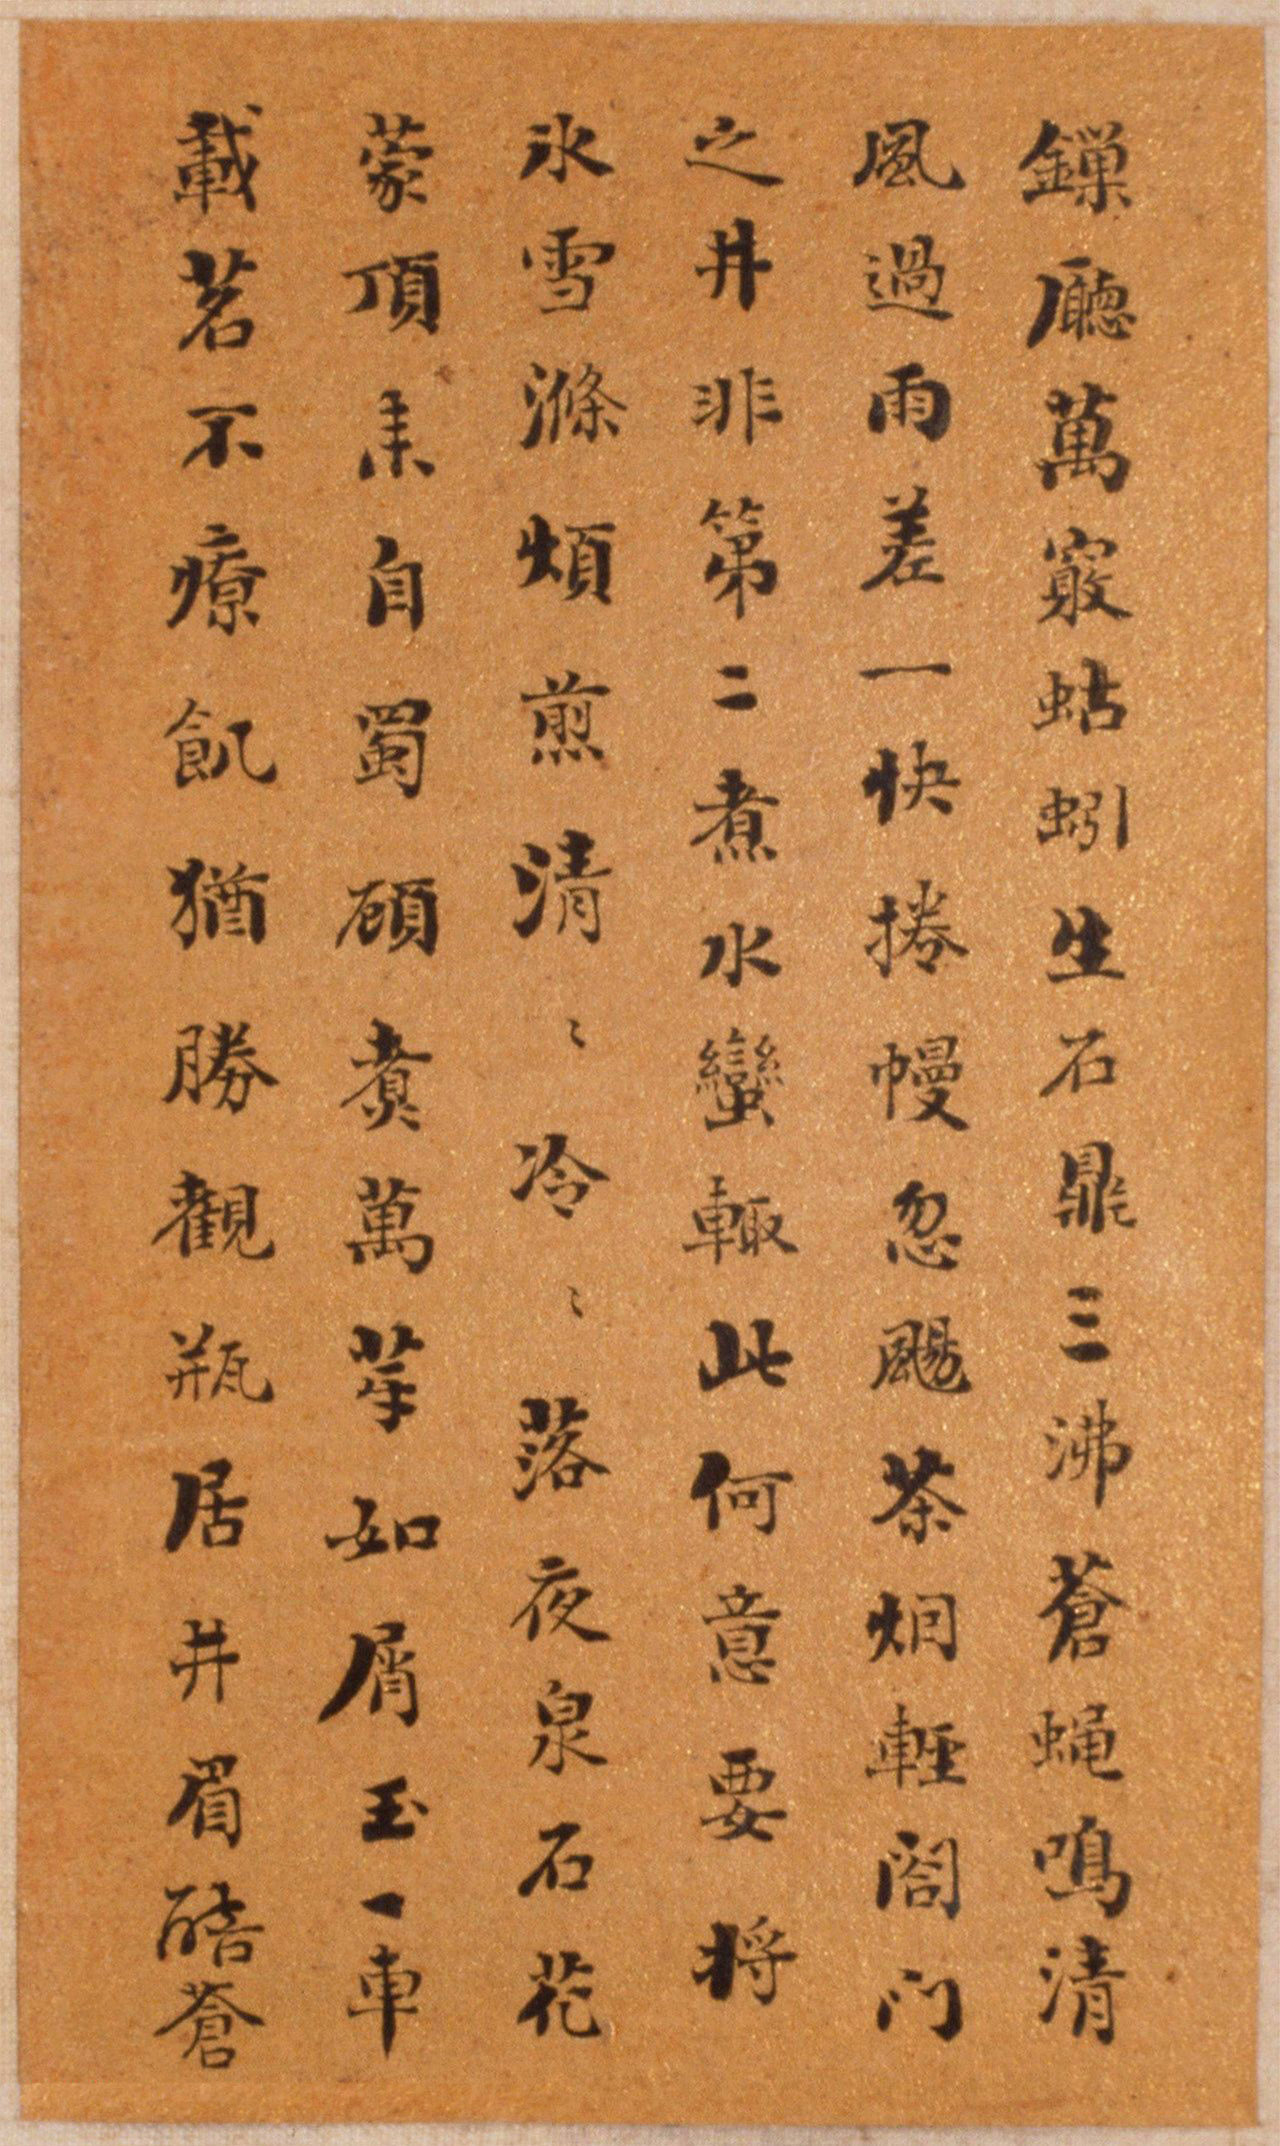 鏁廳萬竅蛄蚓生石鼎三沸蒼蝇鳴清
風過雨差一快捲幔忽颺茶烟輕閤门
之井非第二煮水蠻輙此何意要将
氷雪滌煩煎清〻冷〻落夜泉石花
蒙頂来自蜀碩煑萬芽如屑玉一車
載茗不療飢猶勝觀瓶居井眉酷蒼